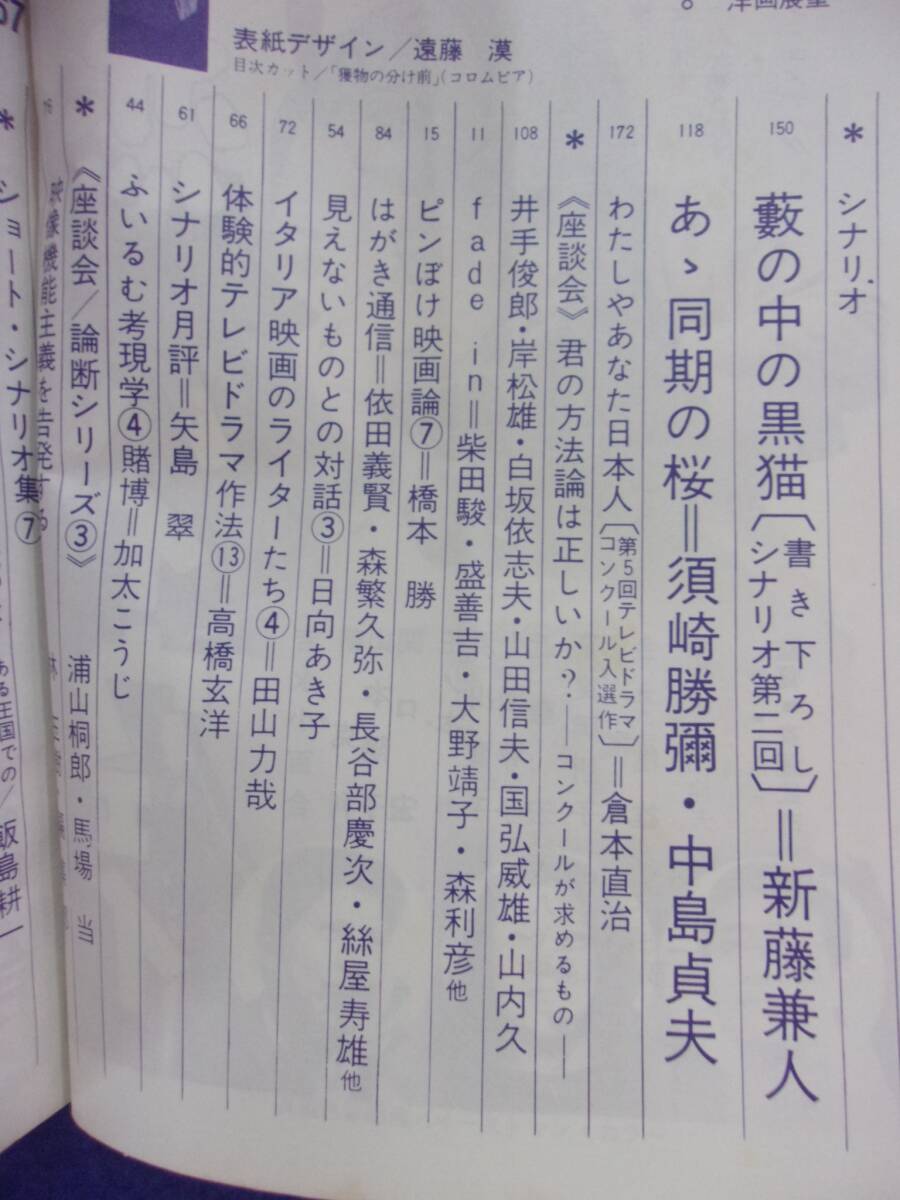 8 洋画展望
表紙デザイン／遠藤 漠
目次カット／「獲物の分け前」（コロムビア）
＊ シナリオ
150 藪の中の黒猫〔書き下ろしシナリオ第二回〕＝新藤兼人
118 あゝ同期の桜＝須崎勝彌・中島貞夫
172 わたしやあなた日本人〔第5回テレビドラマコンクール入選作〕＝倉本直治
＊ 《座談会》君の方法論は正しいか？―コンクールが求めるもの―
108 井手俊郎・岸松雄・白坂依志夫・山田信夫・国弘威雄・山内久
11 fade in＝柴田駿・盛善吉・大野靖子・森利彦他
15 ピンぼけ映画論⑦＝橋本 勝
84 はがき通信＝依田義賢・森繁久弥・長谷部慶次・絲屋寿雄他
54 見えないものとの対話③＝日向あき子
72 イタリア映画のライターたち④＝田山力哉
66 体験的テレビドラマ作法⑬＝高橋玄洋
61 シナリオ月評＝矢島 翠
44 ふいるむ考現学④賭博＝加太こうじ
＊ 《座談会／論断シリーズ③》 浦山桐郎・馬場 当
映像機能主義を告発する
＊ ショート・シナリオ集⑦
ある王国での／飯島耕一
67